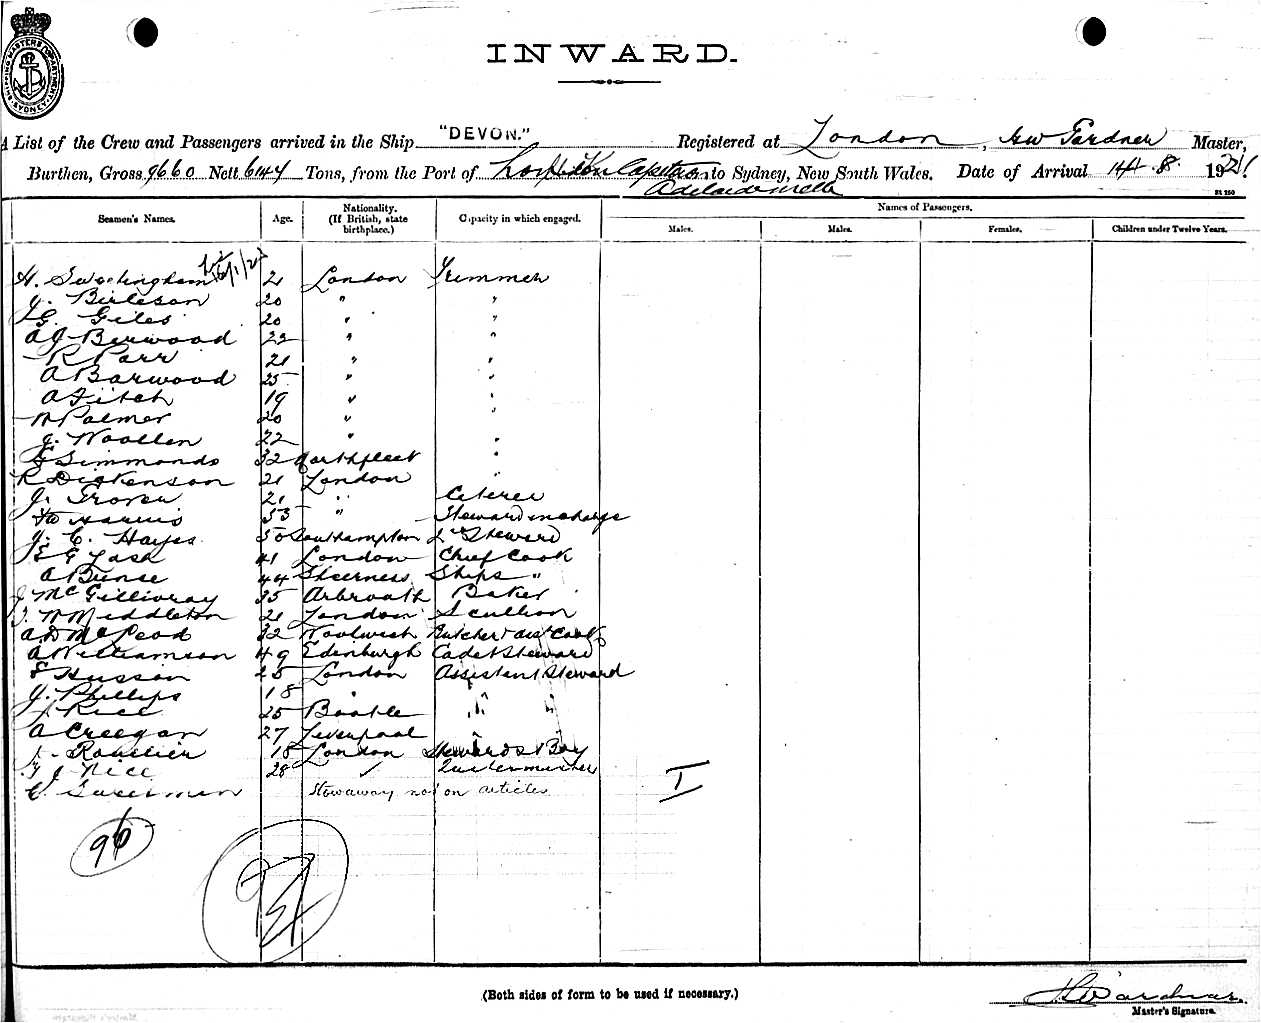 SHIPPING MASTERS DEPARTMENT SYDNEY
INWARD.
A List of the Crew and Passengers arrived in the Ship "DEVON." Registered at London, Gardner Master,
Burthen, Gross 9660 Nett 6144 Tons, from the Port of London Capetown to Sydney, New South Wales. Date of Arrival 8. 1921
Adelaide Melb
Seamen's Names. Age. Nationality. (If British, state birthplace.) Capacity in which engaged. Names of Passengers.
Males. Males. Females. Children under Twelve Years.
H. 21 London Trimmer
J. Birleson 20 " "
G. Giles 20 " "
A J Berwood 22 " "
R Parr 21 " "
A Barwood 25 " "
A Fitch 19 " "
W Palmer 20 " "
J. Woollen 22 " "
G Simmonds 32 Northfleet "
R Dickenson 21 London "
J. Grover 21 "
Harris 53 " Steward in charge
J. C. Hayes 50 Southampton 2nd Steward
E G Lash 41 London Chief Cook
A Bunce 44 Sheerness Ships "
J McGillivray 35 Arbroath Baker
J. W Middleton 21 London Scullion
A. D McLeod 32 Woolwich Butcher & Asst Cook
A Williamson 49 Edinburgh Cadet Steward
Husson 25 London Assistant Steward
J. Phillips 18 " " "
J. Rice 25 Bootle " "
A Creegan 27 Liverpool "
J. 18 London Stewards Boy
J Rice 28 Quartermaster
Stowaway not on articles
I
(Both sides of form to be used if necessary.)
Gardner
Master's Signature.